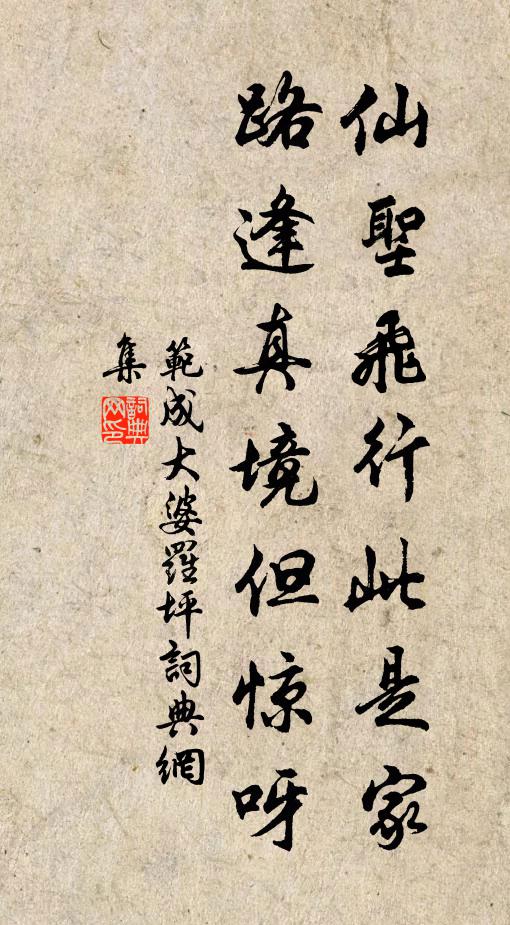 仙聖飛行此是家
路逢真境但惊呀
範成大婆羅坪詞典網
集
詞典
网印